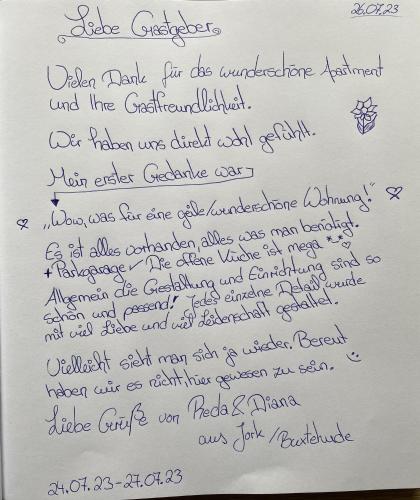 26.07.23
Liebe Gastgeber,
Vielen Dank für das wunderschöne Apartment
und Ihre Gastfreundlichkeit.
Wir haben uns direkt wohl gefühlt.
Mein erster Gedanke war
„Wow, was für eine geile/wunderschöne Wohnung!"
Es ist alles vorhanden, alles was man benötigt.
+ Parkgarage ✓ Die offene Küche ist mega.
Allgemein die Gestaltung und Einrichtung sind so
schön und passend! Jedes einzelne Detail wurde
mit viel Liebe und viel Leidenschaft gestaltet.
Vielleicht sieht man sich ja wieder. Bereut
haben wir es nicht, hier gewesen zu sein.
Liebe Grüße von Reda & Diana
aus Jork / Buxtehude
24.07.23-27.07.23